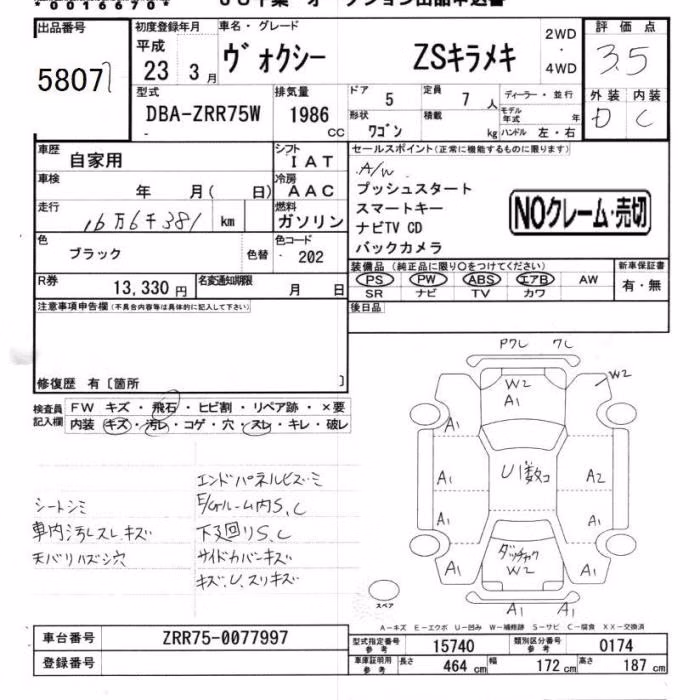 *00166704*
出品番号
58077
初度登録年月
平成
23 3 月
車名・グレード
ヴォクシー ZSキラメキ
2WD
・
4WD
評価点
3.5
外装 内装
D C
型式
DBA-ZRR75W
-
排気量
1986
CC
ドア
5
定員
7 人
ディーラー・並行
形状
ワゴン
積載
kg
モデル年式 年
ハンドル 左・右
車歴
自家用
シフト
IAT
車検
年 月( 日)
冷房
AAC
走行
16万6千381 km
燃料
ガソリン
色
ブラック
色替
色コード
- 202
R券
13,330 円
名変通知期限
月 日
セールスポイント(正常に機能するものに限ります)
A/W
プッシュスタート
スマートキー
ナビTV CD
バックカメラ
NOクレーム・売切
装備品 (純正品に限り○をつけてください)
PS PW ABS エアB AW
SR ナビ TV カワ
新車保証書
有・無
後日品
注意事項申告欄(不具合内容等は具体的に記入して下さい)
修復歴 有〔箇所 〕
検査員
記入欄
FW キズ・飛石・ヒビ割・リペア跡・×要
内装 キズ・汚レ・コゲ・穴・スレ・キレ・破レ
シートシミ
車内汚レスレ.キズ
天バリハズシ穴
エンドパネルビズ・ミ
E/Gルーム内S,C
下廻りS,C
サイドカバーキズ
キズ,U,スリキズ
Pワレ ワレ
W2
A1
W2
A1
A1
U1数コ
A2
A1
A1
ダッチャク
W2
A1
A1
A1 A1
スペア
A-キズ E-エクボ U-凹み W-補修跡 S-サビ C-腐食 XX-交換済
車台番号
ZRR75-0077997
登録番号
型式指定番号
参考
15740
類別区分番号
参考
0174
車庫証明用
参考
長さ 464 cm 幅 172 cm 高さ 187 cm